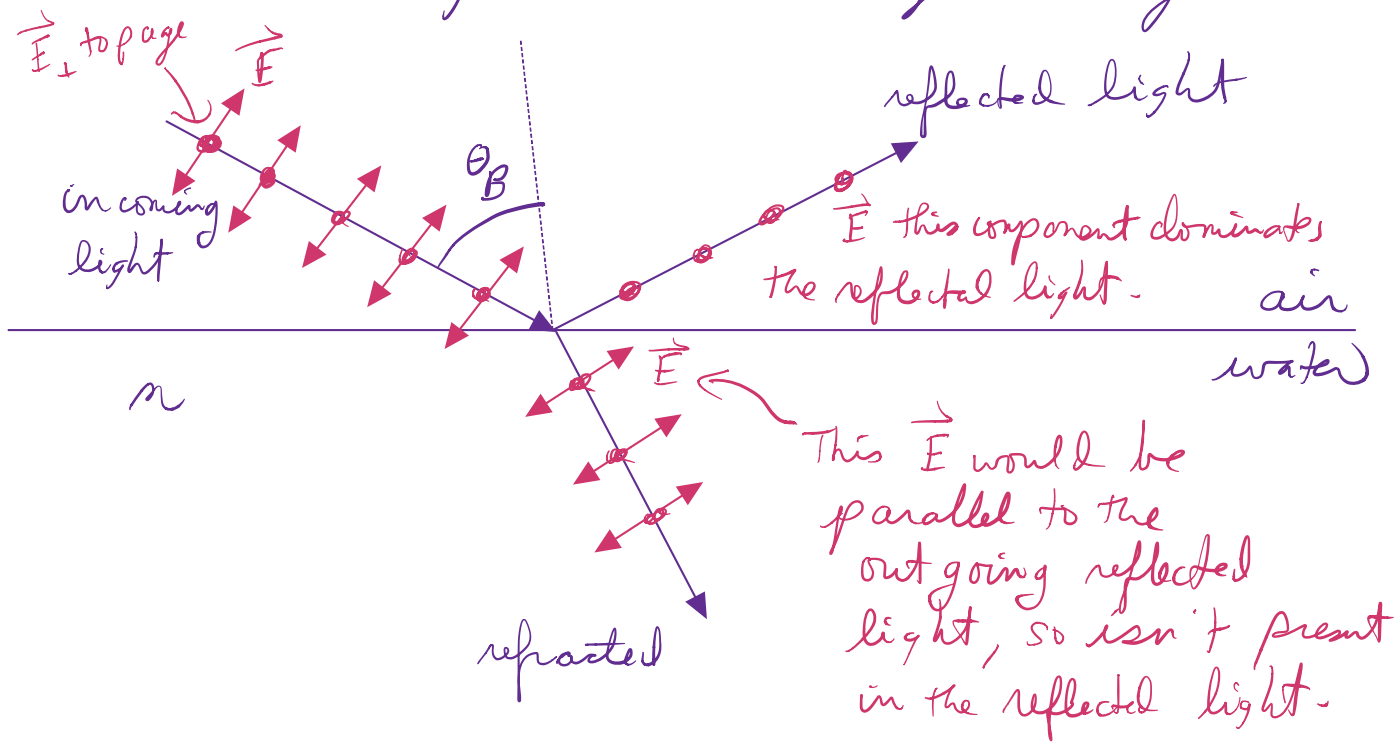 E⃗⊥ to page
E⃗
reflected light
θ_B
incoming
light
E⃗ this component dominates
the reflected light.
air
water
n
E⃗
This E⃗ would be
parallel to the
outgoing reflected
light, so isn't present
in the reflected light.
refracted